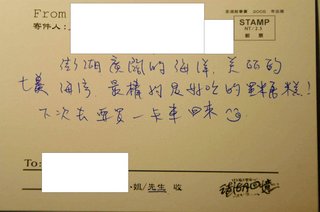 From
寄件人:
STAMP
NT/2.5
郵票
澎湖廣闊的海洋,美麗的
七美海灣,最棒的是好吃的黑糖糕!
下次去要買一卡車回來
To:
·姐/先生 收